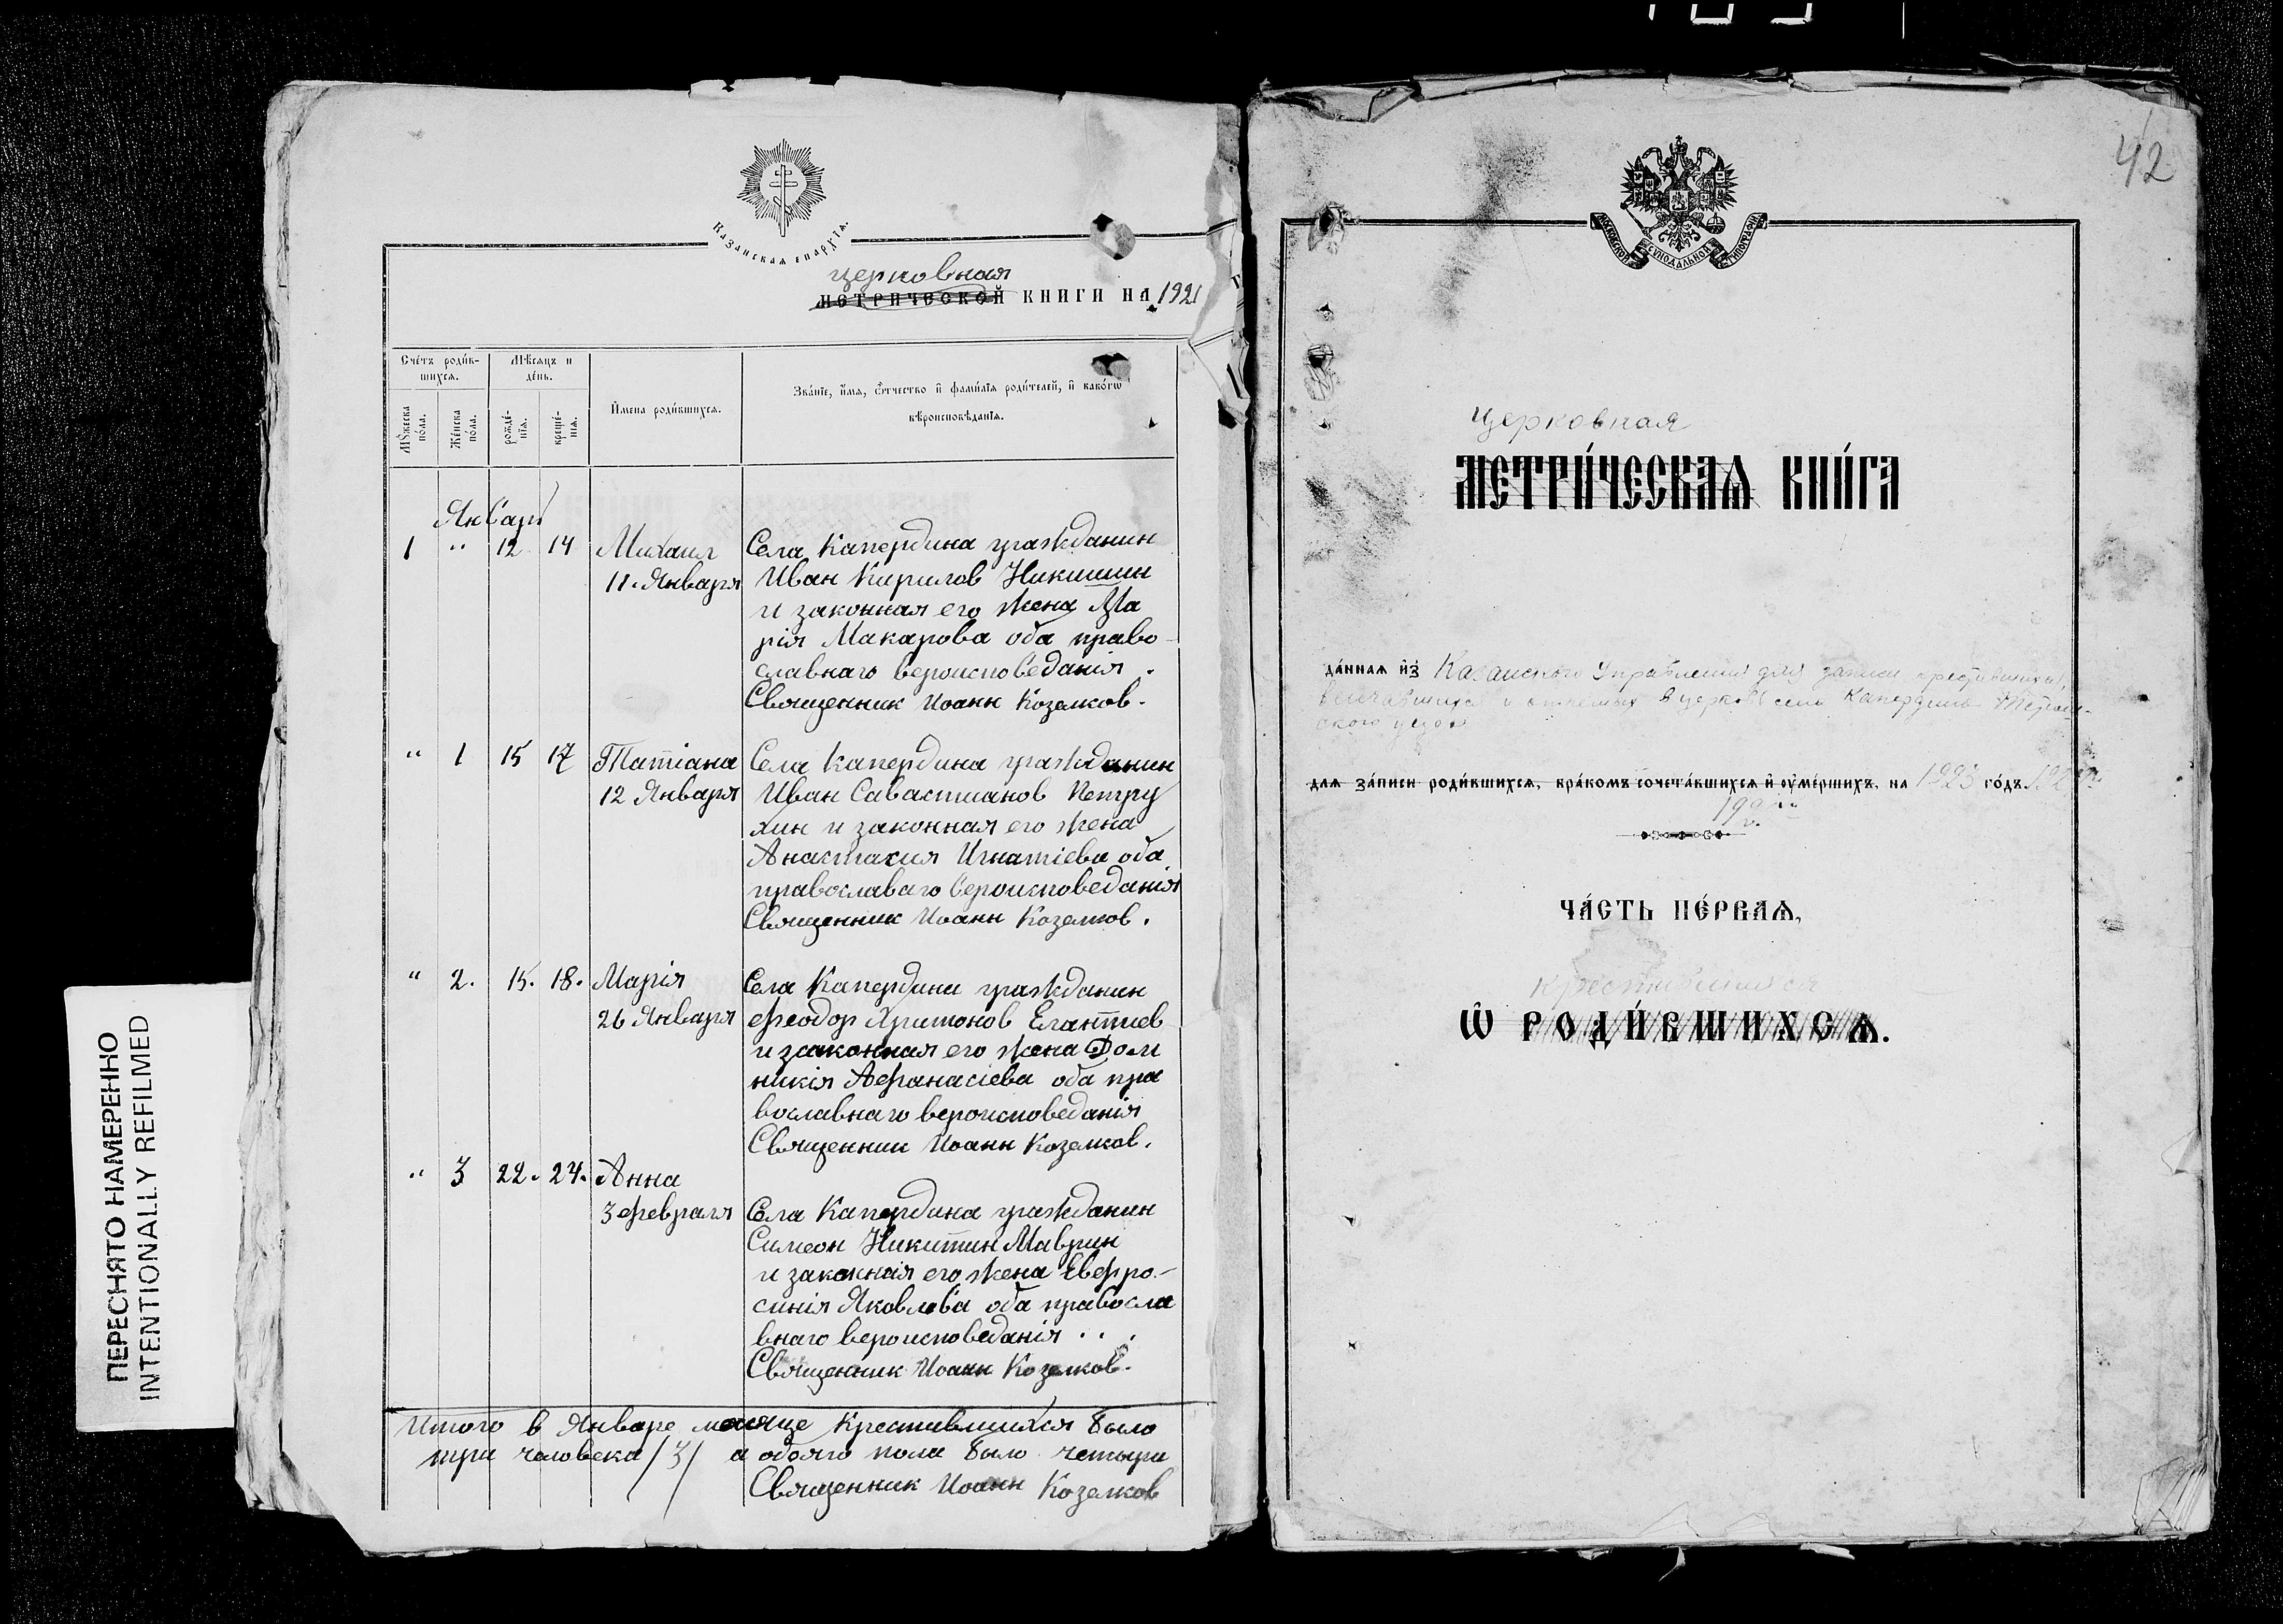 ПЕРЕСНЯТО НАМЕРЕННО
INTENTIONALLY REFILMED
Казанская епархїя.
церковная
метрической книги на 1921
Счетъ роди́в-
шихся.
Мѣсяцъ и
де́нь.
Му́жеска
по́ла.
Же́нска
по́ла.
рожде́-
нїя.
креще́-
нїя.
И҆мена роди́вшихся.
Зва́нїе, и҆́мя, ѻ҆́тчество и҆ фами́лїя роди́телей, и҆ како́гѡ
вѣроисповѣ́данїя.
Январь
1 " 12 14 Михаил Села Капердина гражданин
11. Января Иван Кирилов Никишин
и законная его жена Ма
рія Макарова оба право-
славнаго вероисповеданія.
Священник Иоанн Козелков.
" 1 15 17 Татіана Села Капердина гражданин
12 Января Иван Савастианов Петру
хин и законная его жена
Анастасия Игнатіева оба
православаго вероисповеданія
Священник Иоанн Козелков.
" 2. 15. 18. Марія Села Капердина гражданин
26 Января Феодор Харитонов Елантиев
и законная его жена Дом
никія Афанасіева оба пра
вославнаго вероисповеданія
Священник Иоанн Козелков.
" 3 22. 24. Анна
3 февраля Села Капердина гражданин
Симеон Никитин Маврин
и законная его жена Евфро-
синія Яковлева оба правосла
внаго вероисповеданія . . .
Священник Иоанн Козелков.
Итого в Январе месяце крестившихся было
три человека /3/ а обояго пола было четыри
Священник Иоанн Козелков
42
МОСКОВСКОЙ СѴНОДАЛЬНОЙ ТИПОГРАФІИ
церковная
МЕТРИ́ЧЕСКАѦ КНИ́ГА
да́ннаѧ и҆з̾ Казанского Управления для записи крестившихся,
венчавшихся и отпетых в церкви села Капердина
ского уезда
для за́писи роди́вшихся, бра́комъ сочета́вшихся и҆ ᲂу҆ме́ршихъ, на 1923 го́дъ.
ЧА́СТЬ ПЕ́РВАѦ,
крестившихся
Ѡ҆ РОДИ́ВШИХСѦ.